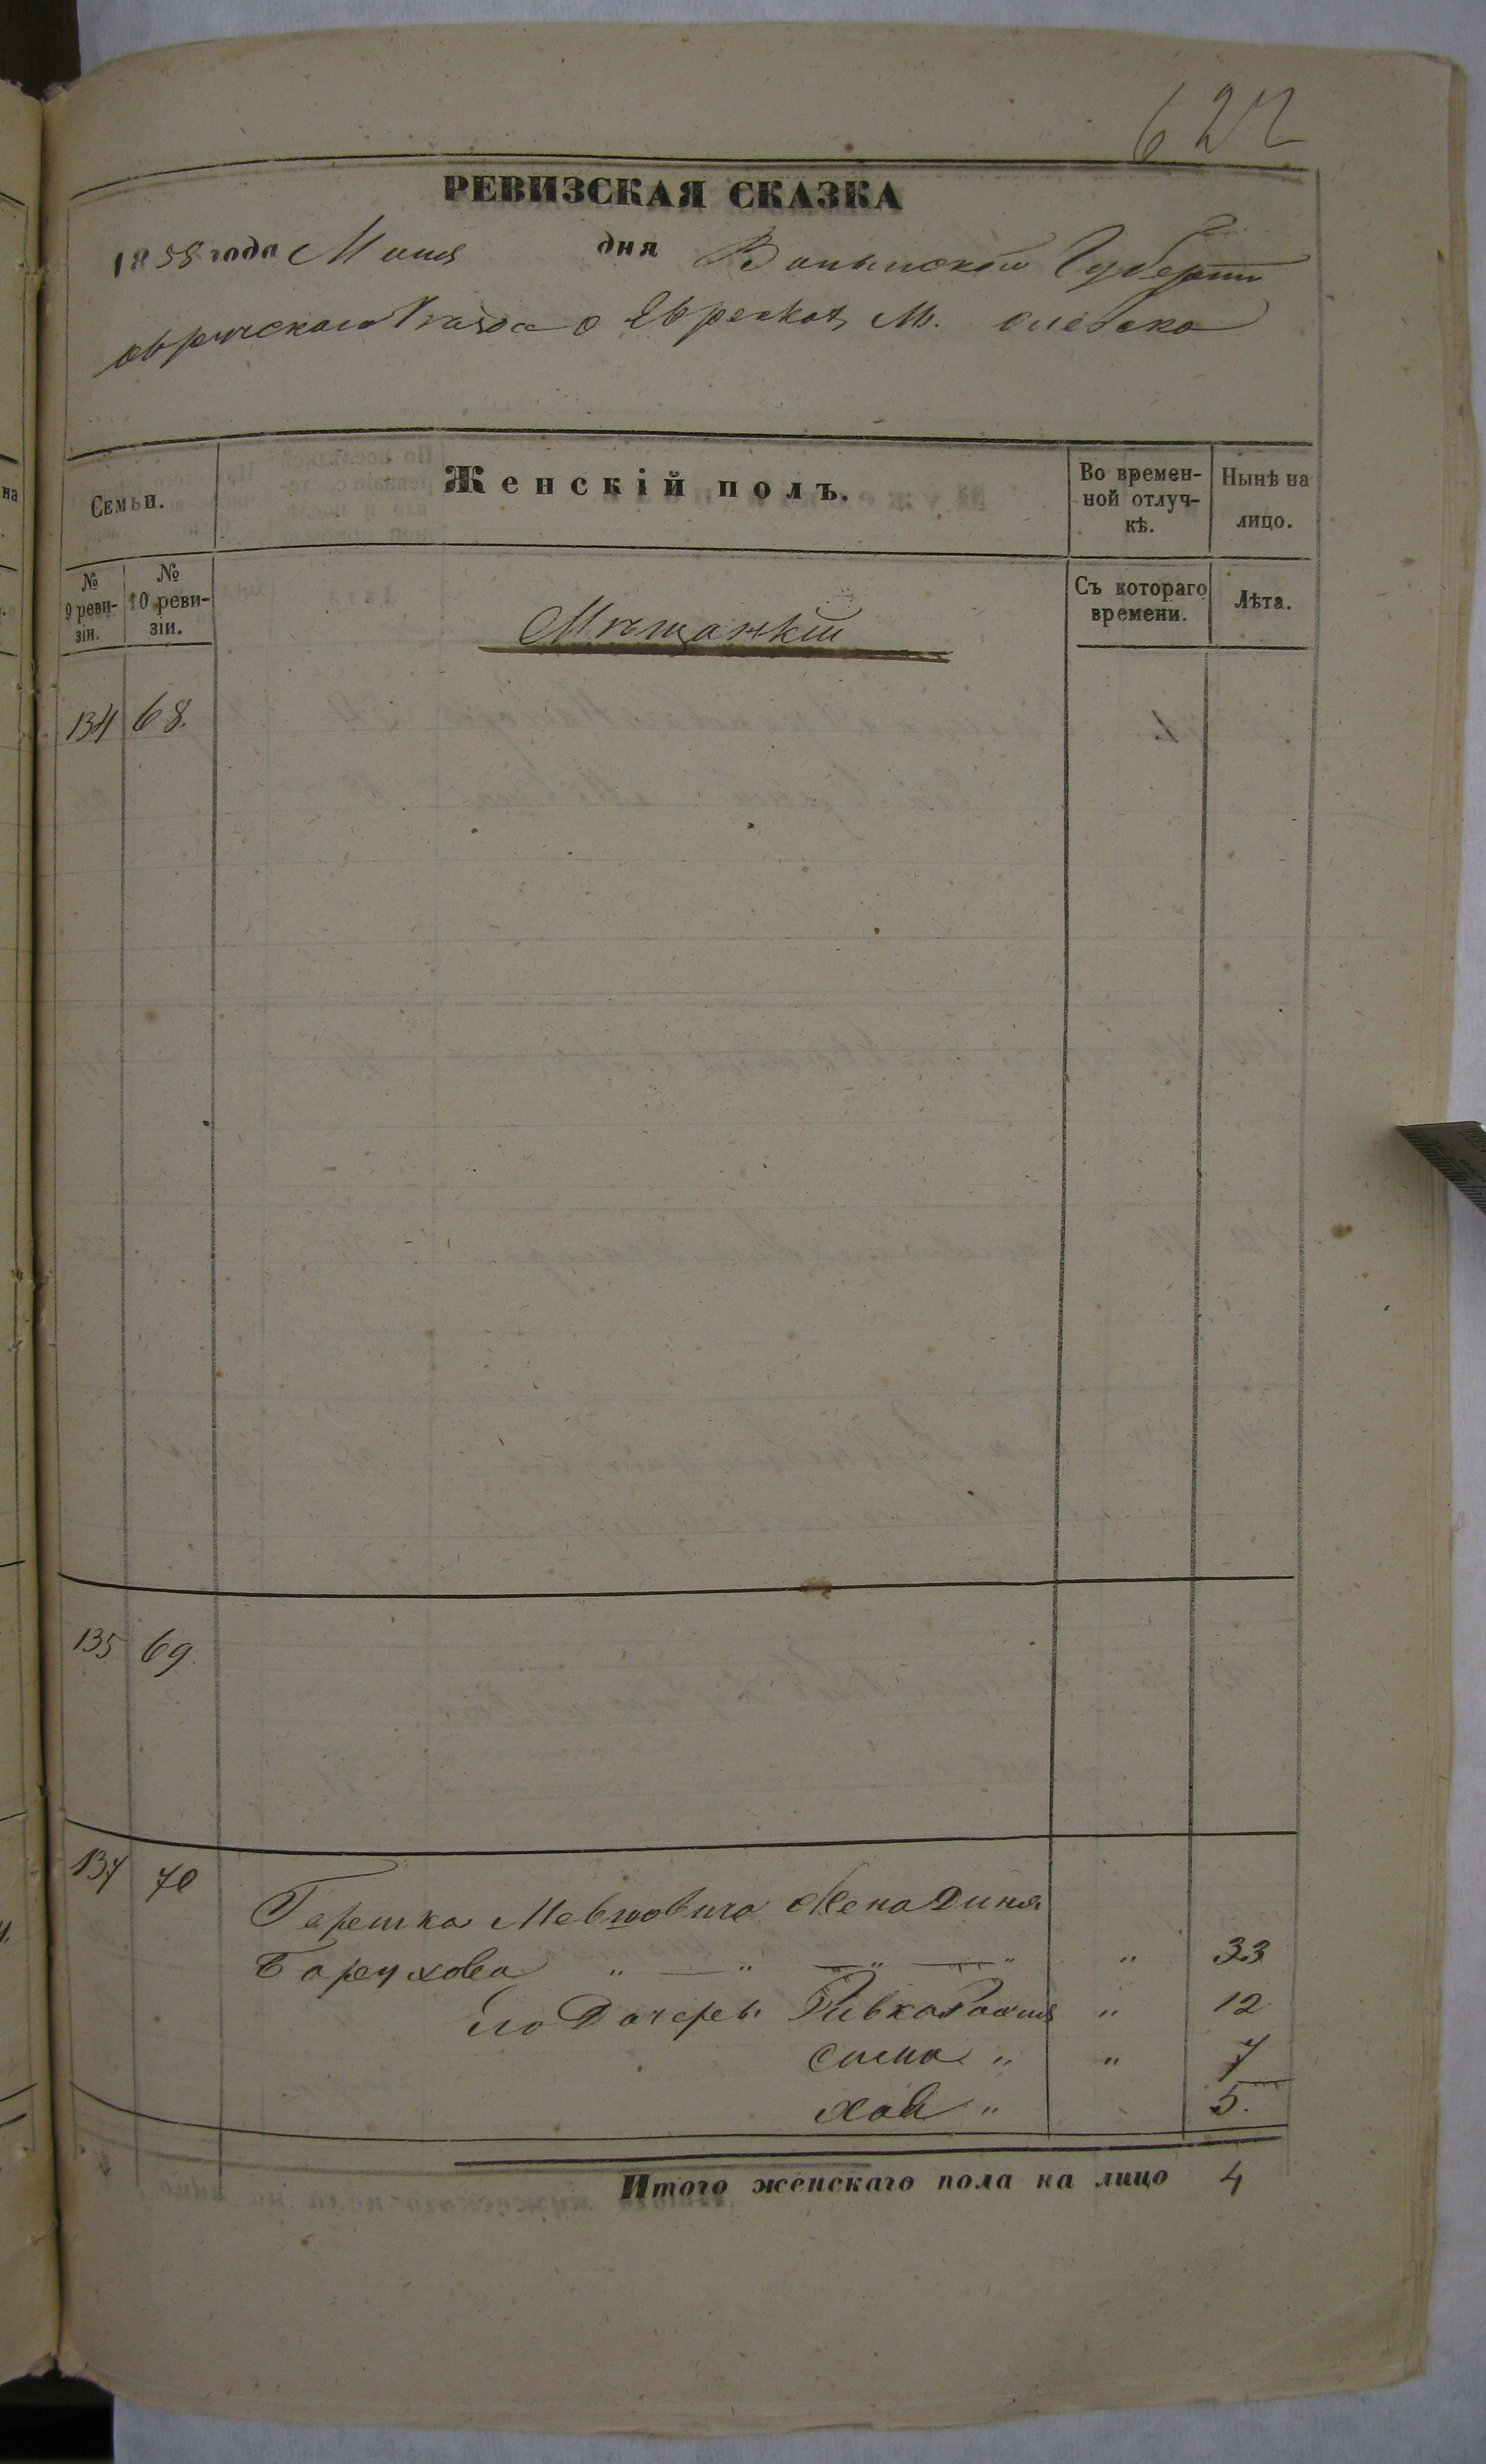 622
РЕВИЗСКАЯ СКАЗКА
1858 года Маия дня Волынской Губернии
овручского Уезда о Еврейкахъ М. Олевска
Семьи.
Женскій полъ.
Во времен-
ной отлуч-
кѣ.
Нынѣ на
лицо.
№
9 реви-
зіи.
№
10 реви-
зіи.
Съ котораго
времени.
Лѣта.
Мѣщанкіи
134 68.
135 69.
137 70
Гершка Мевшовича Жена Диня
Борухова " — " — " — " " 33
его Дочеръ Ривка Рахля " 12
Сима " " 7
Хая " 5.
Итого женскаго пола на лицо 4